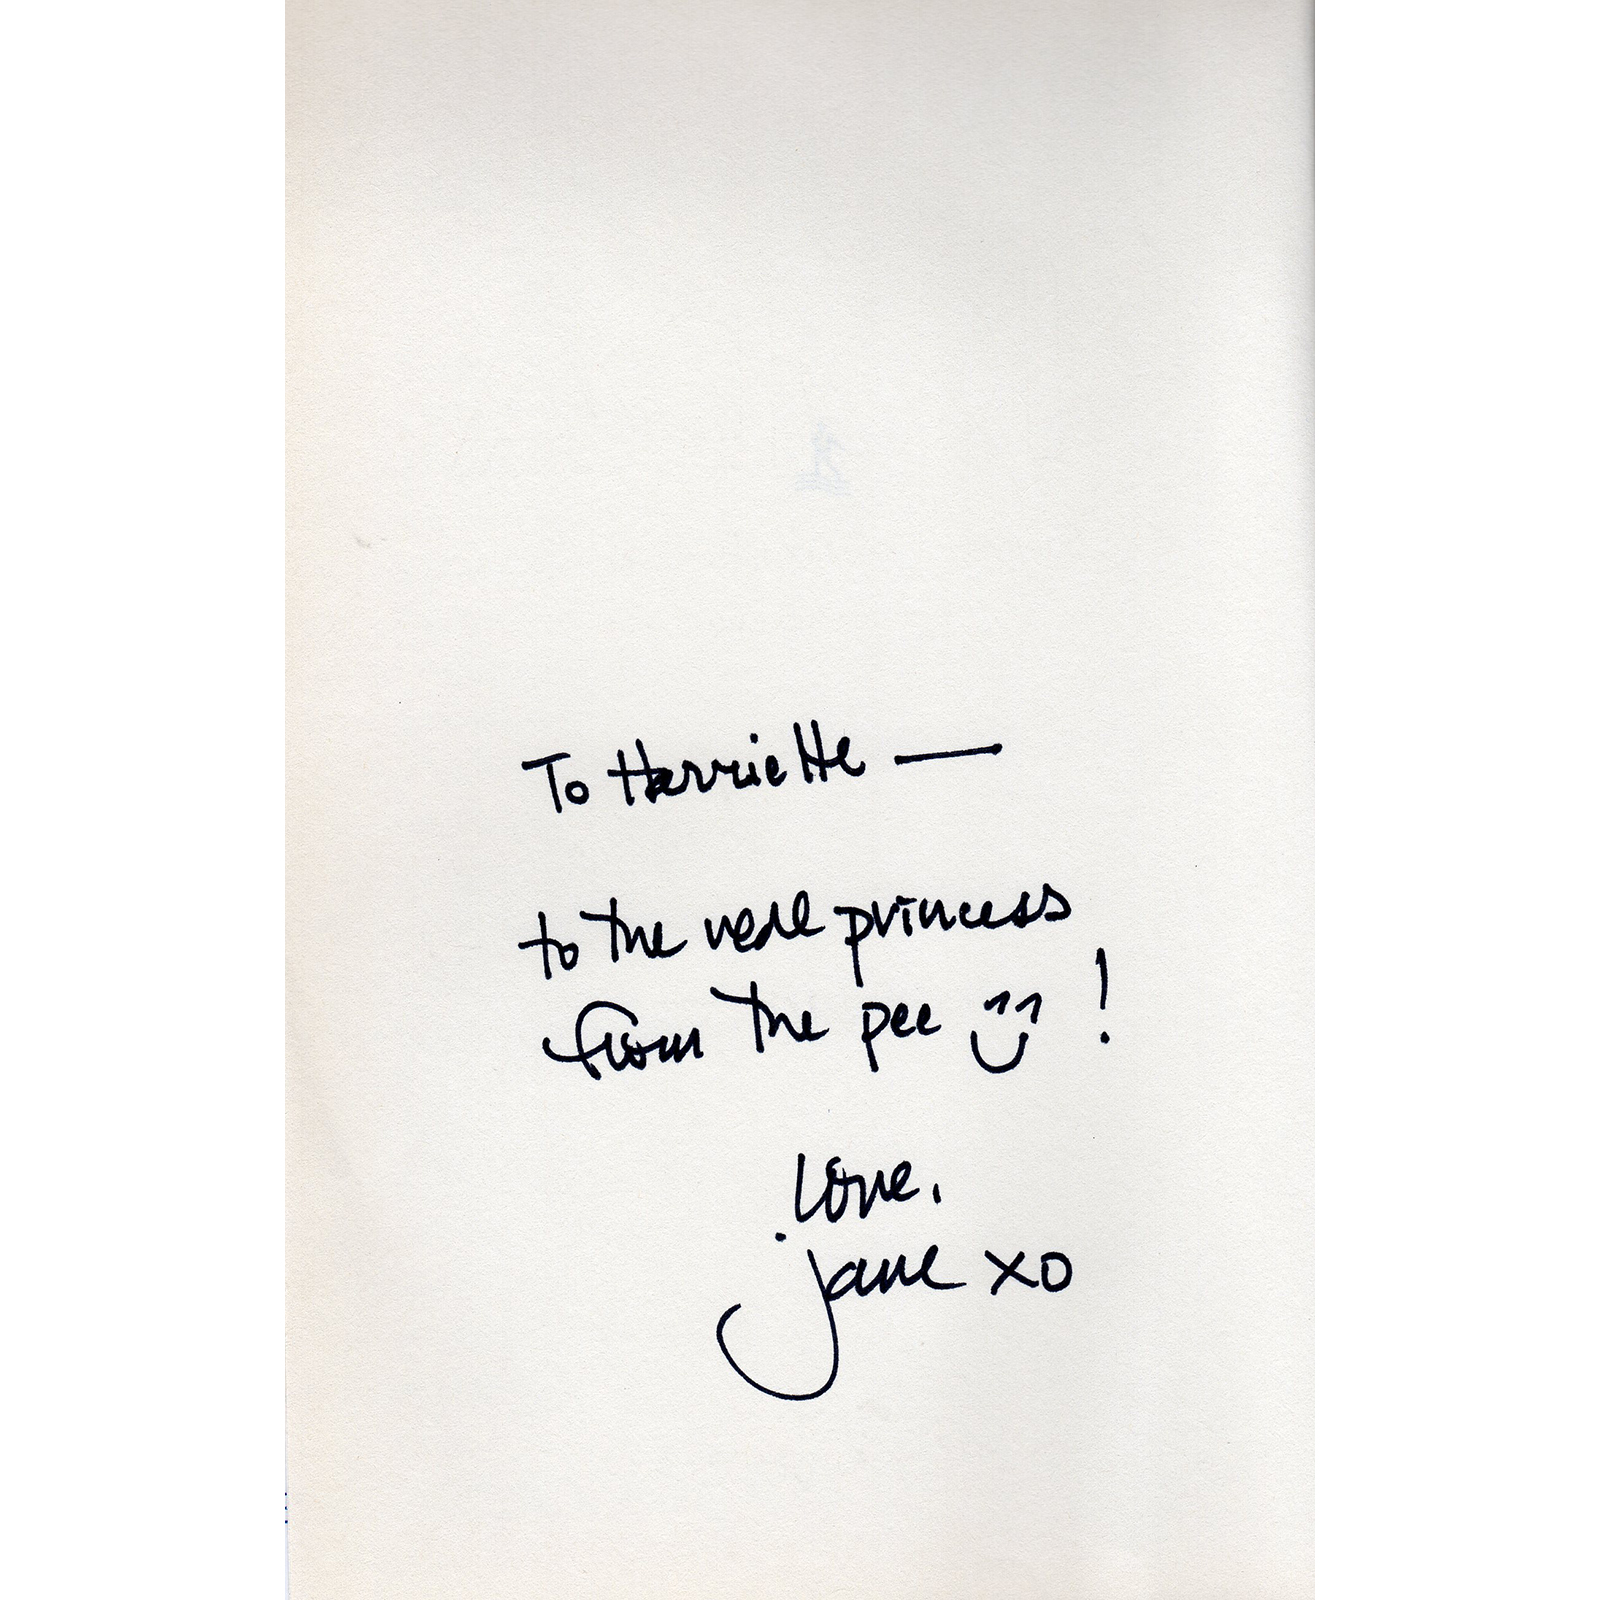 To Harriette —
to the real princess
from the pee !
Love,
Jane XO